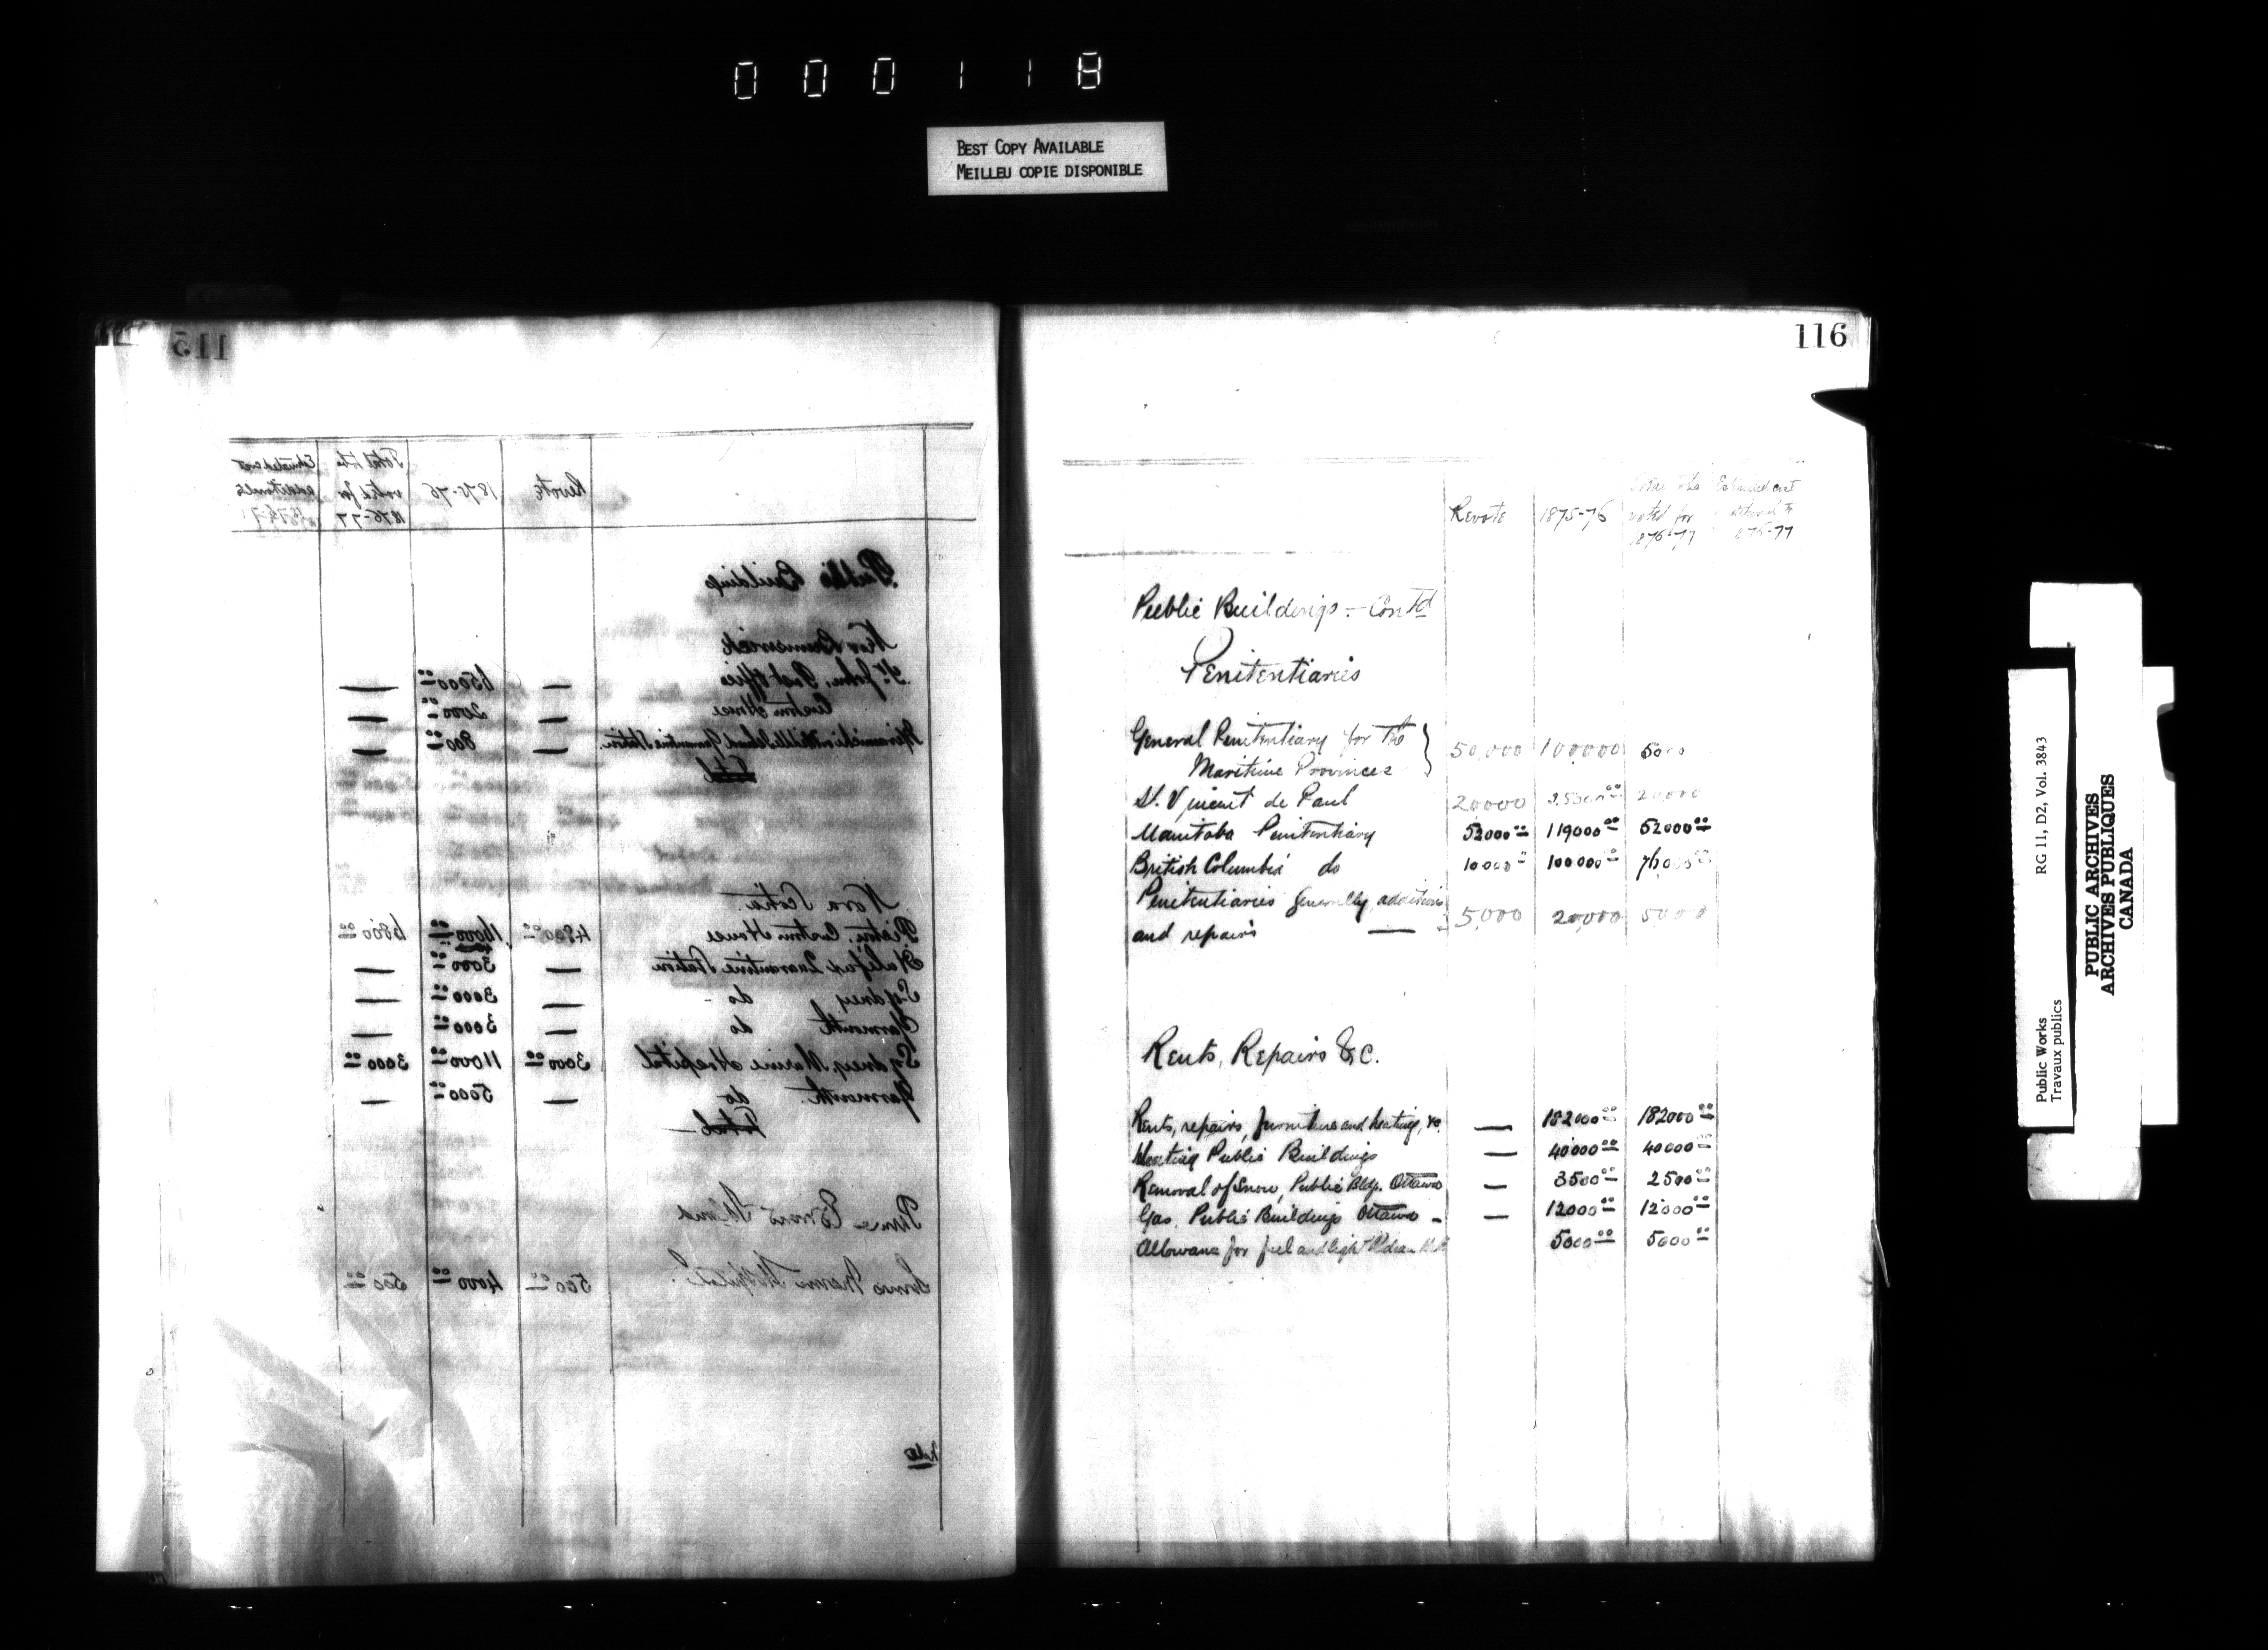 000118
BEST COPY AVAILABLE
MEILLEU COPIE DISPONIBLE
115
Revote 1875-76 Total to be voted for 1876-77 Estimated cost additional to 1876-77
Public Buildings
New Brunswick
St. John, Post Office — 65000 00 —
Custom House — 2000 00 —
Miramichi or Middle Island Quarantine Station. — 800 00 —
Nova Scotia
Pictou, Custom House 4800 00 16000 00 6800 00
Halifax Quarantine Station — 3000 00 —
Sydney do — 3000 00 —
Yarmouth do — 3000 00 —
Sydney Marine Hospital 3000 00 11000 00 3000 00
Yarmouth do — 5000 00 —
Total
Prince Edward Island
Marine Hospital 500 00 4000 00 500 00
116
Revote 1875-76 Total to be voted for 1876-77 Estimated cost additional to 1876-77
Public Buildings — Cont'd
Penitentiaries
General Penitentiary for the
Maritime Provinces } 50,000 100000
St. Vincent de Paul 20000 20,000
Manitoba Penitentiary 52000 00 119000 00 52000 00
British Columbia do 10000 00 100000 00 76,000 00
Penitentiaries generally, additions
and repairs — 5,000 20,000 5000
Rents, Repairs &c.
Rents, repairs, furniture and heating, &c. — 182000 00 182000 00
Heating Public Buildings — 40000 00 40000 00
Removal of Snow, Public Bldgs. Ottawa — 3500 00 2500 00
Gas, Public Buildings Ottawa — 12000 00 12000 00
Allowance for fuel and light Rideau Hall 5000 00 5000 00
Public Works RG 11, D2, Vol. 3843
Travaux publics
PUBLIC ARCHIVES
ARCHIVES PUBLIQUES
CANADA